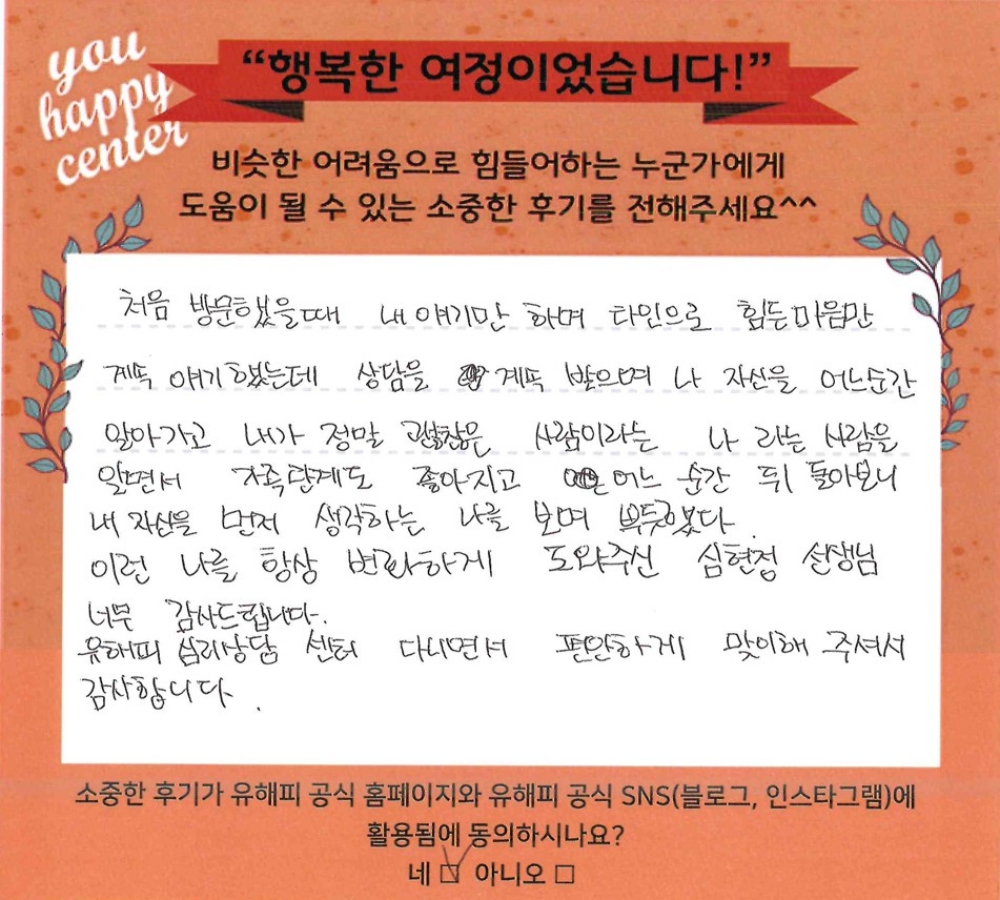 you
happy
center
“행복한 여정이었습니다!”
비슷한 어려움으로 힘들어하는 누군가에게
도움이 될 수 있는 소중한 후기를 전해주세요^^
처음 방문했을때 내 얘기만 하며 타인으로 힘든마음만
계속 얘기했는데 상담을 계속 받으며 나 자신을 어느순간
알아가고 내가 정말 괜찮은 사람이라는 나 라는 사람을
알면서 가족관계도 좋아지고 어느 순간 뒤 돌아보니
내 자신을 먼저 생각하는 나를 보며 뿌듯했다.
이런 나를 항상 변화하게 도와주신 심현정 선생님
너무 감사드립니다.
유해피 심리상담 센터 다니면서 편안하게 맞이해 주셔서
감사합니다.
소중한 후기가 유해피 공식 홈페이지와 유해피 공식 SNS(블로그, 인스타그램)에
활용됨에 동의하시나요?
네 ☑ 아니오 □